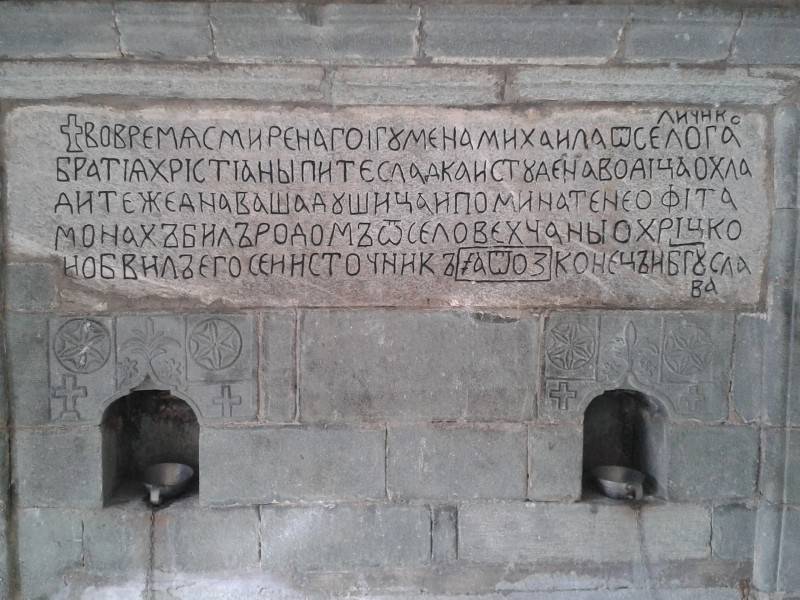 ЛИЧНИКС
ВОВРЕМАСМИРЕНАГОІГУМЕНАМИХАИЛАѾСЕЛОГА
БРАТІАХРІСТІАНЫПИТЕСЛАДКАИСТУДЕНАВОДІЦАОХЛА
ДИТЕЖЕДНАВАШАДУШИЦАИПОМИНАТЕНЕОФІТА
МОНАХЪБИЛЪРОДОМЪѾСЕЛОВЕХЧАНЫОХРІЦКО
НОБВИЛЪЕГОСЕИИСТОЧНИКЪ҂АѾОЗКОНЕЦЪИБГУСЛА
ВА